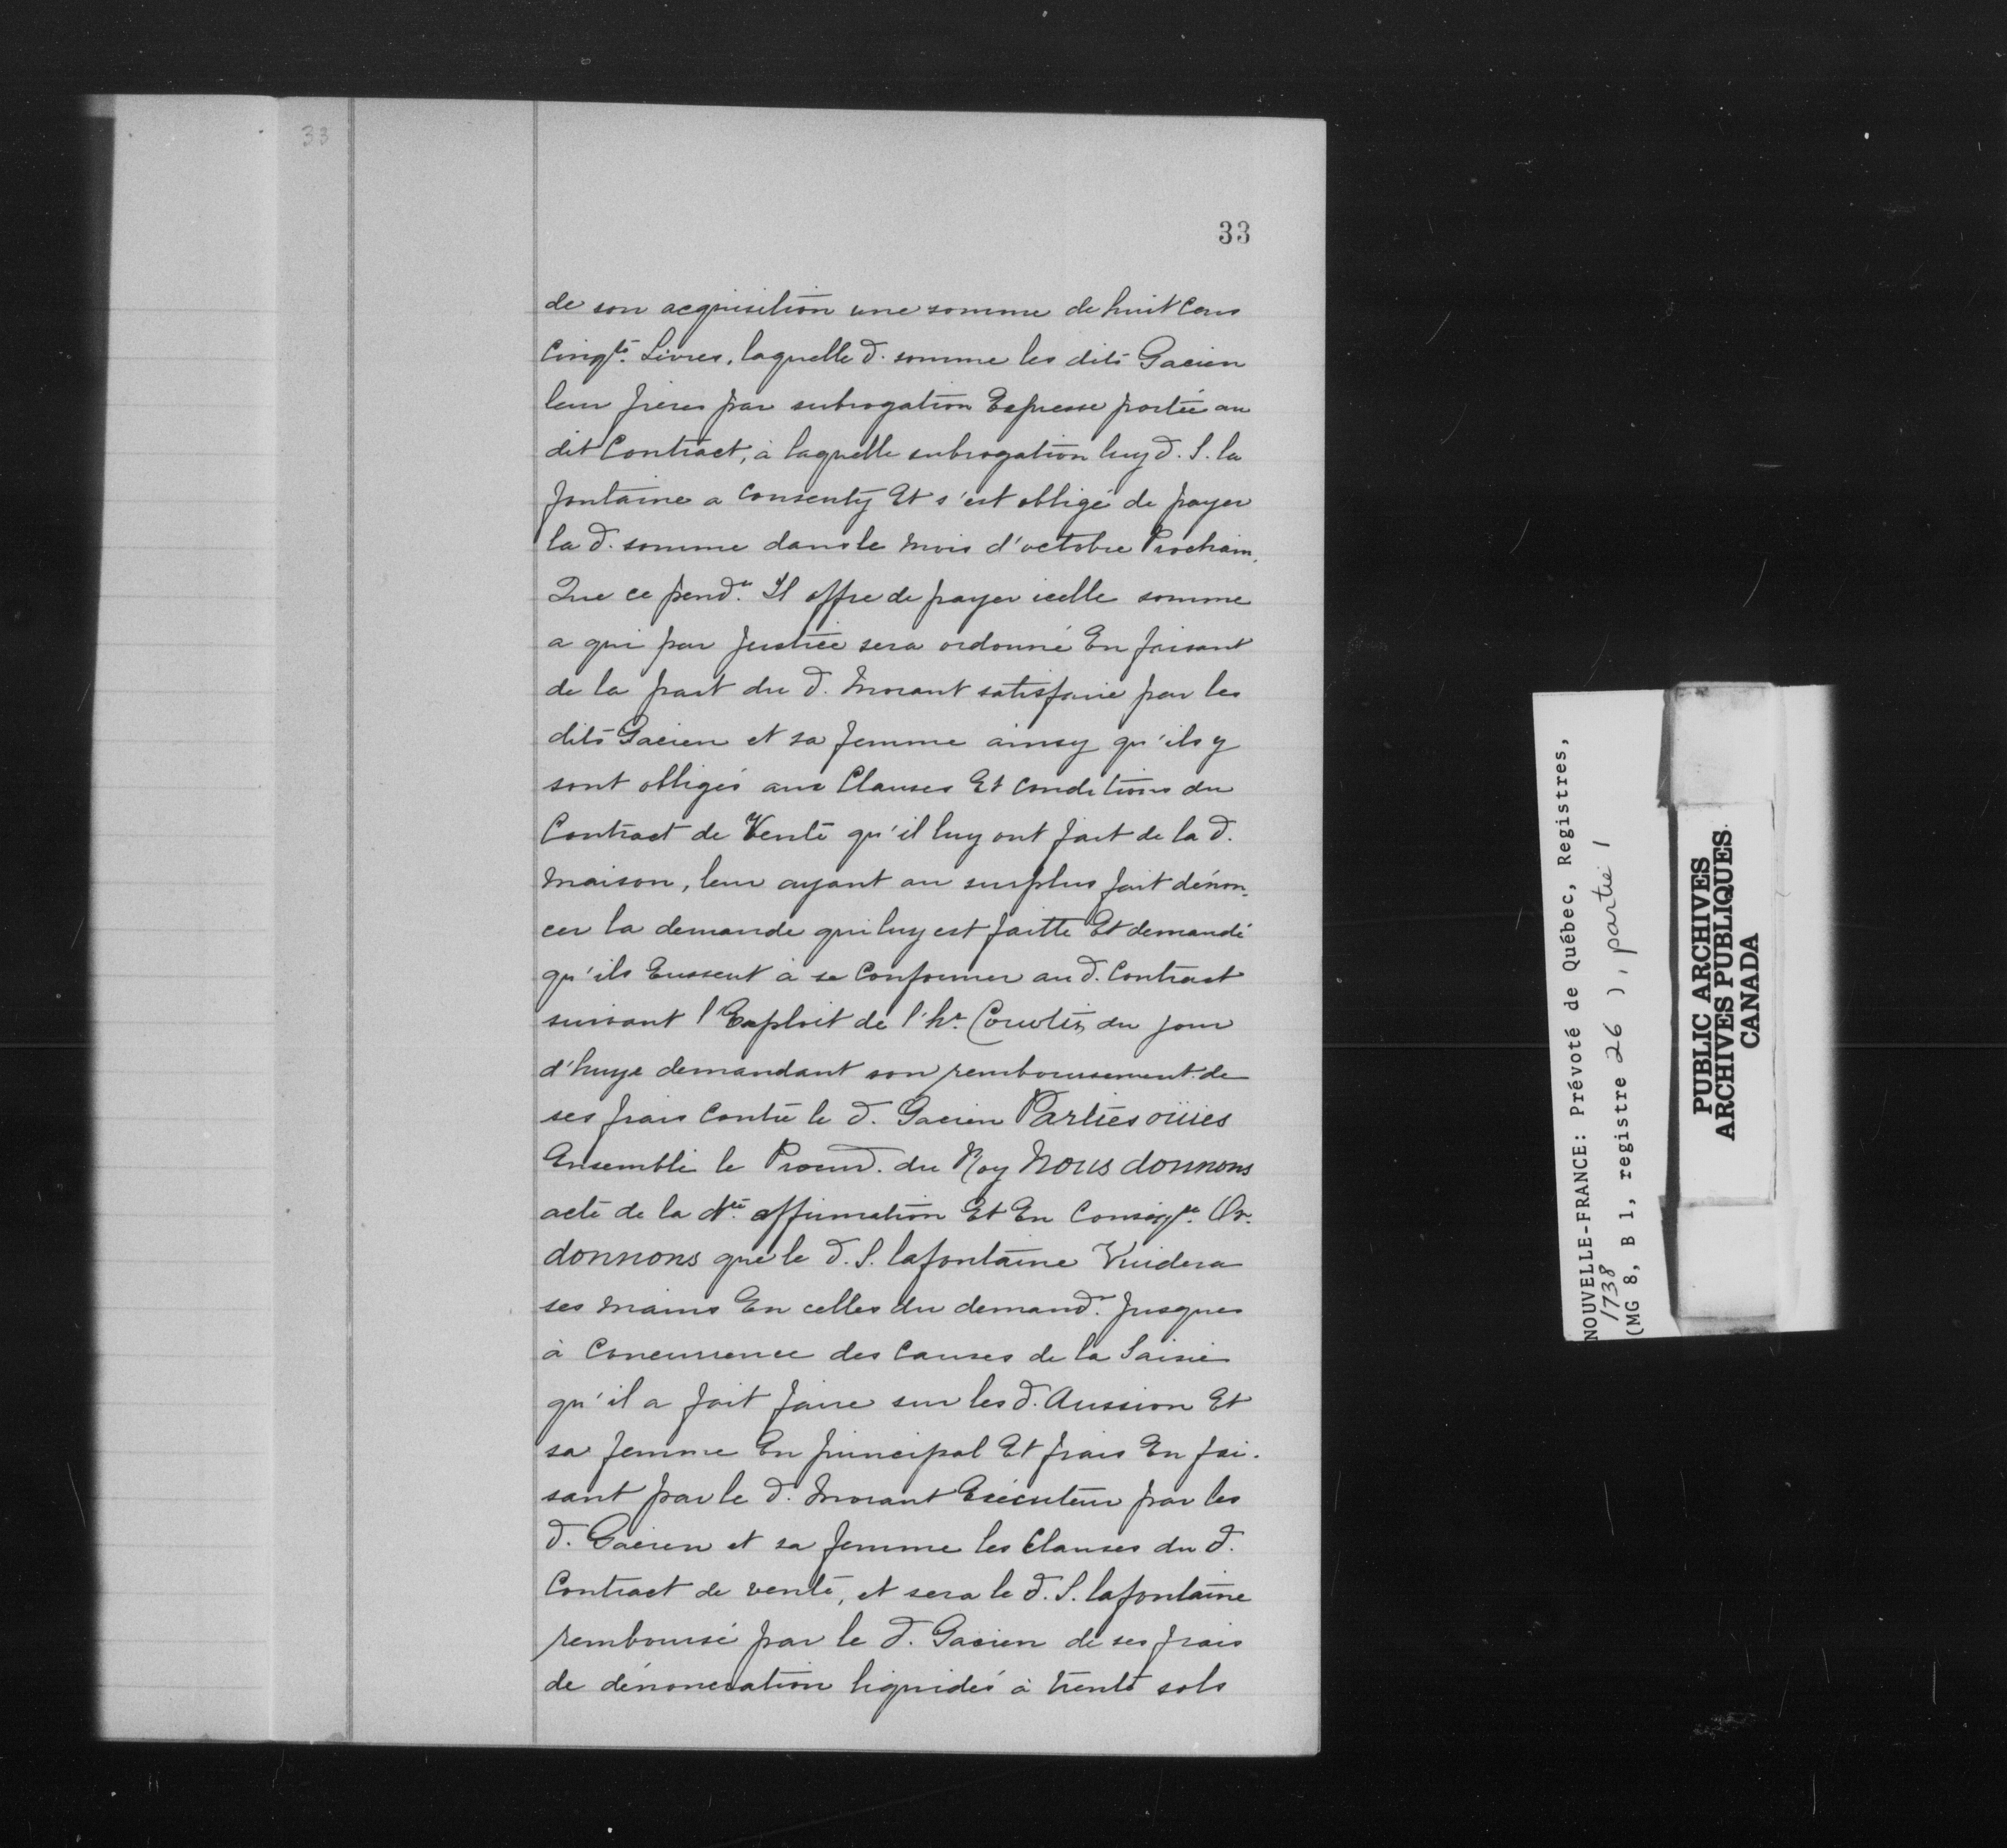 33
33
de son acquisition une somme de huit Cens
Cinqte. Livres, laquelle d. somme les dits Gacien
leur frères par subrogation Expresse portée au
dit Contract, à laquelle subrogation luy d. S. la
fontaine a consenty Et s'est obligé de payer
la d. somme dans le mois d'octobre Prochain.
Que ce pend.t Il offre de payer icelle somme
a qui par Justice sera ordonné En faisant
de la part du d. Morant satisfaire par les
dits Gacien et sa femme ainsy qu'ils y
sont obligés aux Clauses Et conditions du
Contract de Vente qu'il luy ont fait de la d.
maison, leur ayant au surplus fait dénon-
cer la demande qui luy est faitte Et demandé
qu'ils Eussent à se Conformer au d. Contract
suivant l'Exploit de l'hr. Courtin du jour
d'huye demandant son remboursement de
ses frais contre le d. Gacien Parties oüies
Ensemble le Procur. du Roy Nous donnons
acte de la dte. affirmation Et En Conseqce. Or-
donnons que le d. S. lafontaine Vuidera
ses mains En celles du demandr. Jusques
à Concurrence des Causes de la Saisie
qu'il a fait faire sur les d. Aussion Et
sa femme En principal Et frais En fai-
sant par le d. Morant Executeur par les
d. Gacien et sa femme les Clauses du d.
Contract de vente, et sera le d. S. lafontaine
remboursé par le d. Gacien de ses frais
de dénonciation liquidés à trente sols
NOUVELLE-FRANCE: Prévoté de Québec, Registres,
1738
(MG 8, B 1, registre 26 ), partie 1
PUBLIC ARCHIVES
ARCHIVES PUBLIQUES
CANADA